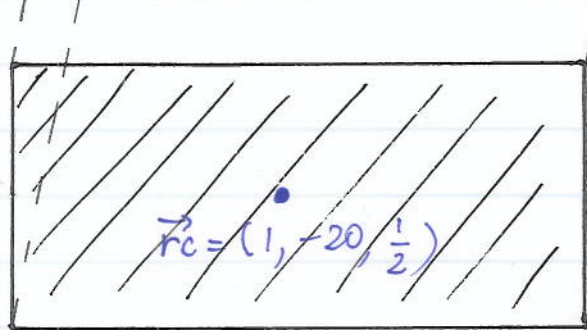 $\vec{rc} = (1, -20, \frac{1}{2})$